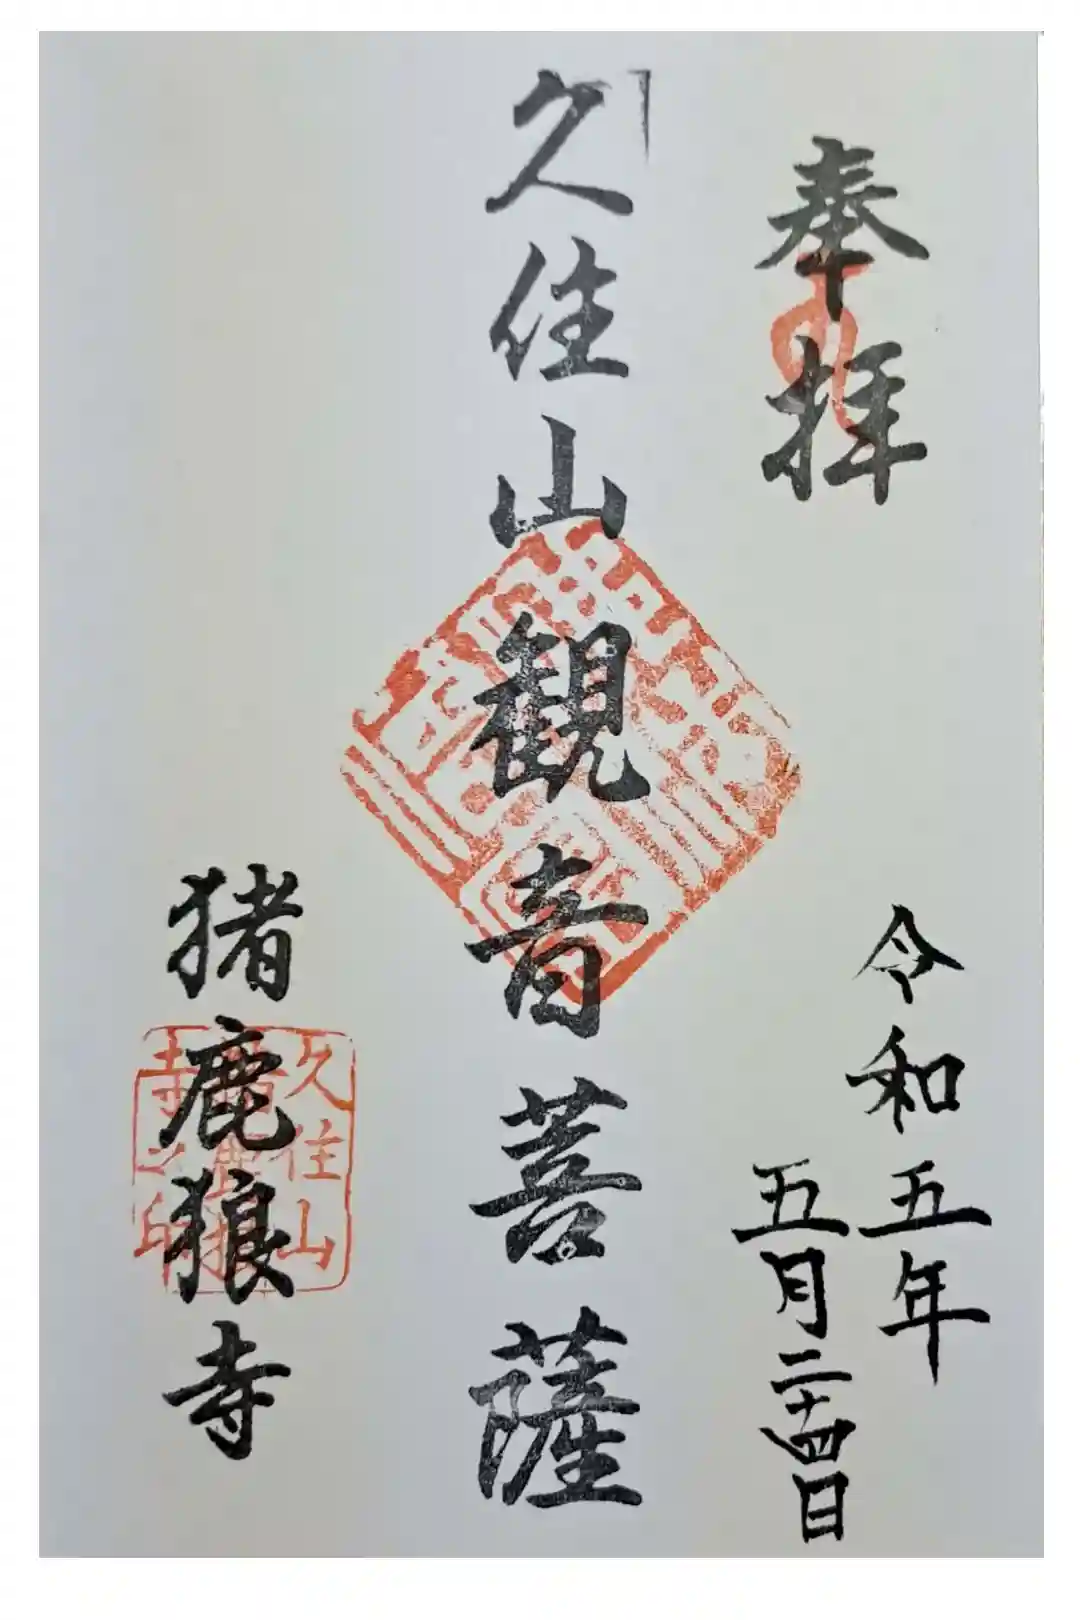 奉拝
令和五年
五月二十四日
久住山観音菩薩
猪鹿狼寺
久住山
寺之印